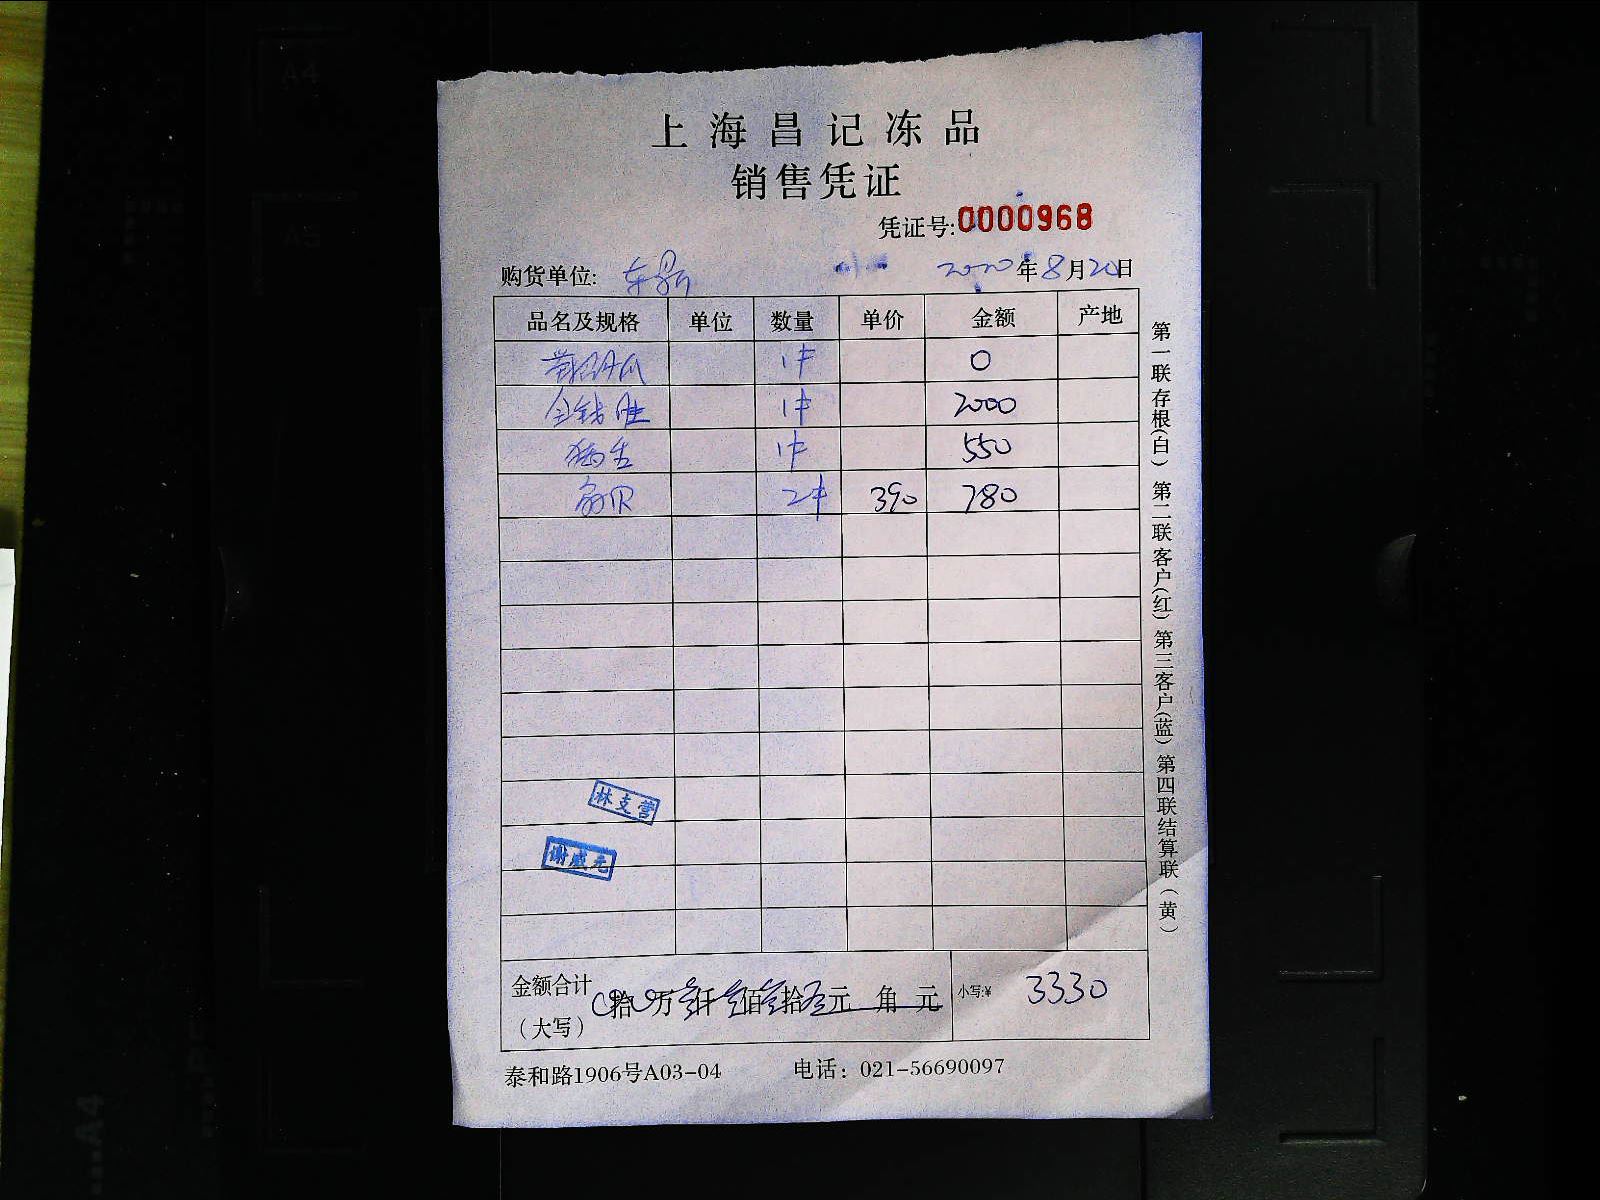 上海昌记冻品
销售凭证
凭证号:0000968
购货单位: 2020年8月20日
品名及规格 单位 数量 单价 金额 产地
1件 0
金钱肚 1件 2000
1件 550
扇贝 2件 390 780
林支营
谢威元
金额合计(大写) 拾 万 叁仟 叁佰 叁拾 元 角 元 小写:¥ 3330
泰和路1906号A03-04 电话：021-56690097
第一联存根(白) 第二联客户(红) 第三客户(蓝) 第四联结算联(黄)
A4
A5
A4